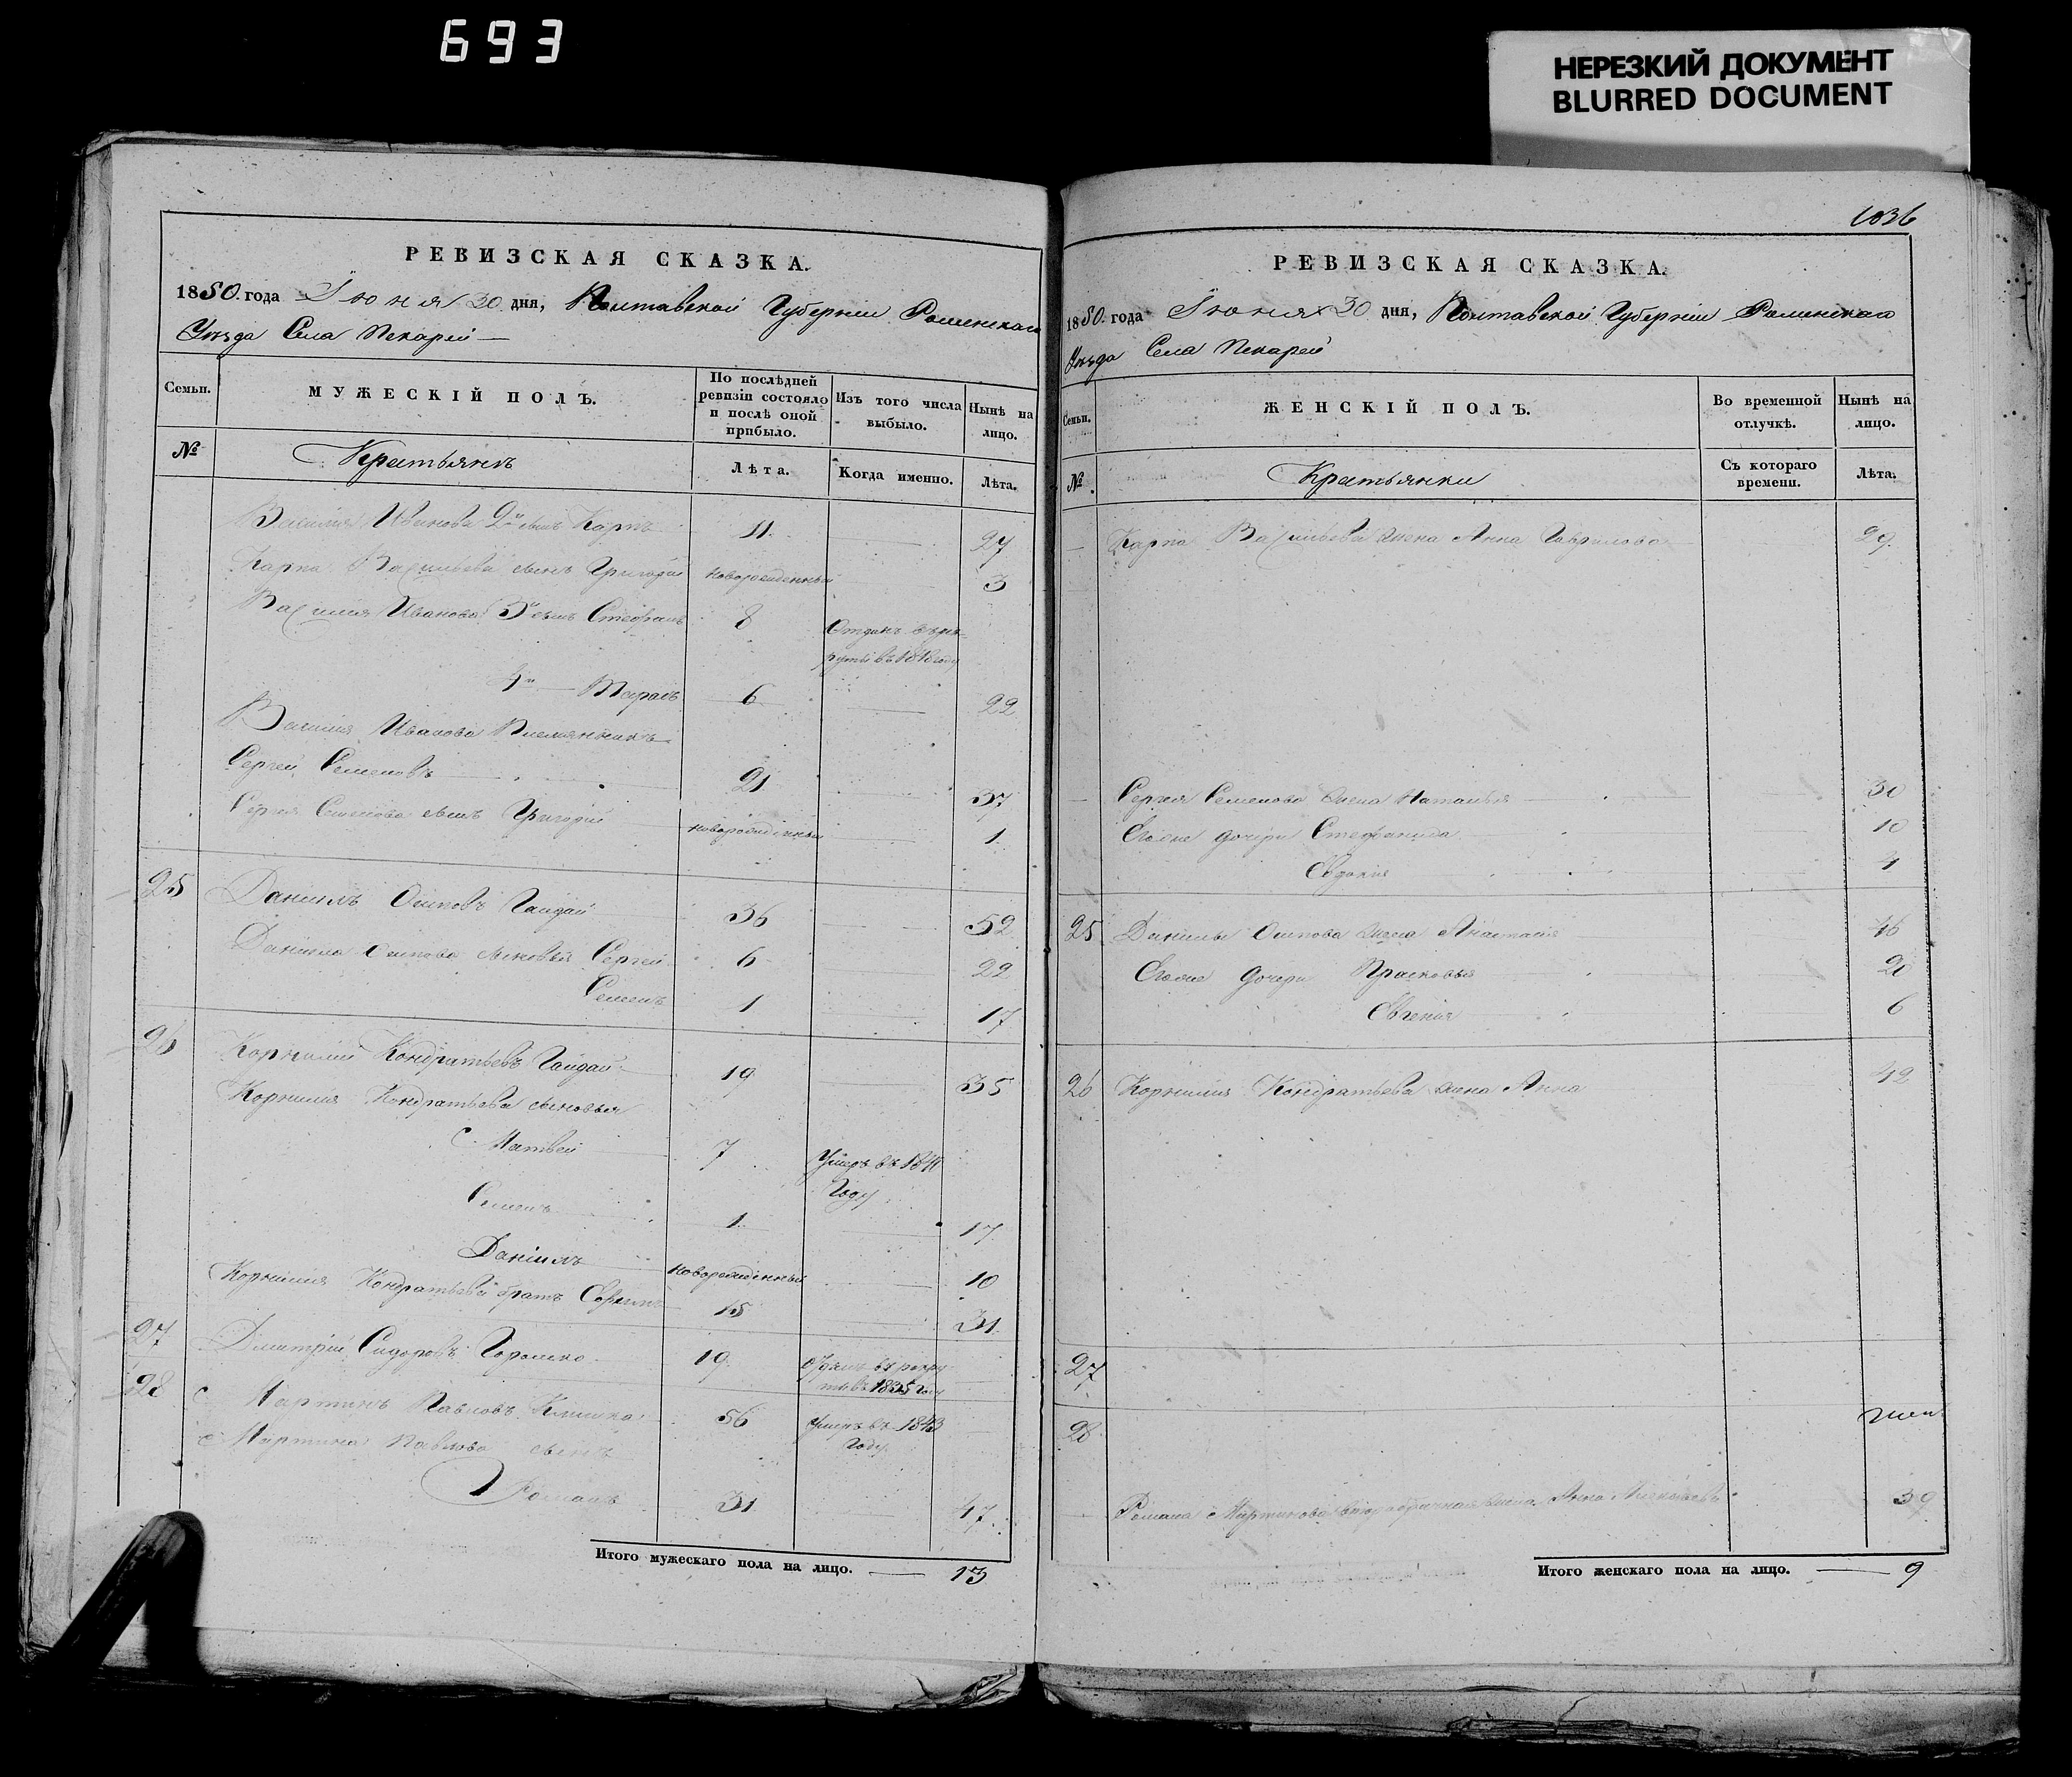 693
НЕРЕЗКИЙ ДОКУМЕНТ
BLURRED DOCUMENT
РЕВИЗСКАЯ СКАЗКА.
1850. года Июня 30 дня, Полтавской Губерніи Роменскаго
Уѣзда Села Пекарей —
Семьи.
МУЖЕСКІЙ ПОЛЪ.
По послѣдней
ревизіи состояло
и послѣ оной
прибыло.
Изъ того числа
выбыло.
Нынѣ на
лицо.
№
Крестьянъ
Лѣта.
Когда именно.
Лѣта.
Василія Иванова 2й сынъ Карпъ 11. 27
Карпа Васильева сынъ Григорій новорожденный 3
Василія Иванова 3й сынъ Стефанъ 8 Отданъ въ рек-
руты въ году
4й — Тарасъ 6 22
Василія Иванова Племянникъ
Сергей Семеновъ 21 37
Сергія Семенова сынъ Григорій новорожденный 1
25 Даніилъ Осиповъ Гайдай 36 52
Даніила Осипова сыновья Сергей 6 22
Семенъ 1 17
26 Корнилій Кондратьевъ Гайдай 19 35
Корнилія Кондратьева сыновья
Матвей 7 Умеръ въ
году
Семенъ 1. 17
Даніилъ новорожденный 10
Корнилія Кондратьева братъ 15 31
27 Дмитрій Сидоровъ 19. въ рекру-
ты въ 1835 году
28 Мартинъ Павловъ 56 Умеръ въ 1843
году
Мартина Павлова сынъ
Романъ 31 47
Итого мужескаго пола на лицо. — 13
1036
РЕВИЗСКАЯ СКАЗКА.
1850. года Июня 30 дня, Полтавской Губерніи Роменскаго
Уѣзда Села Пекарей
Семьи.
ЖЕНСКІЙ ПОЛЪ.
Во временной
отлучкѣ.
Нынѣ на
лицо.
№
Крестьянки
Съ котораго
времени.
Лѣта.
Карпа Васильева жена Анна Гаврилова 29.
Сергея Семенова жена Наталья 30
Его же дочери Стефанида 10
Евдокия 4
25 Данилы Осипова жена Анастасія 46
Его же дочери Прасковья 20
Евгенія 6
26 Корнилія Кондратьева жена Анна 42
27
28
Романа Мартинова второбрачная жена Анна 39
Итого женскаго пола на лицо. — 9